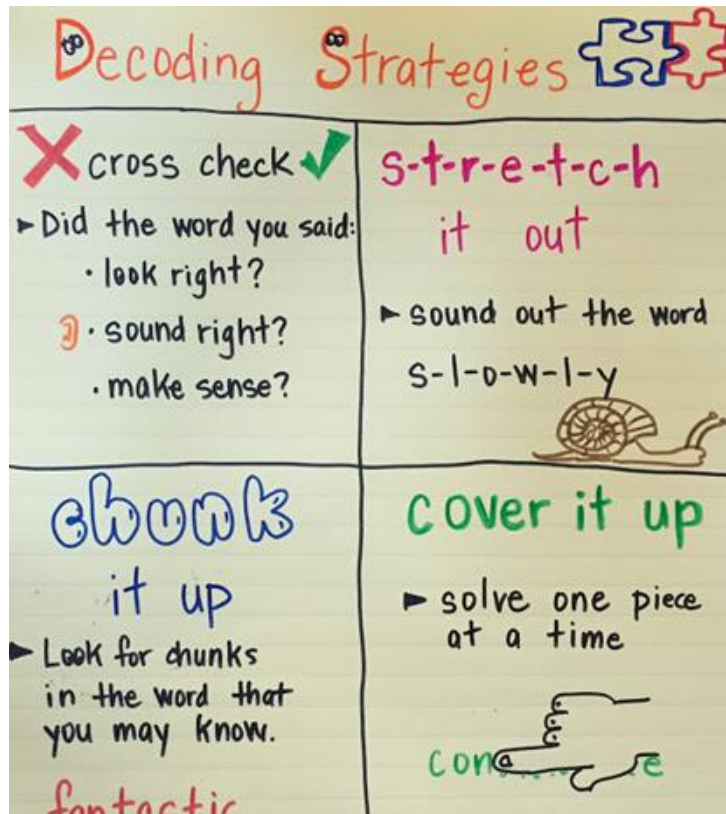 Decoding Strategies
cross check
Did the word you said:
· look right?
· sound right?
· make sense?
s-t-r-e-t-c-h
it out
sound out the word
s-l-o-w-l-y
chunk
it up
Look for chunks
in the word that
you may know.
fantastic
cover it up
solve one piece
at a time
con e